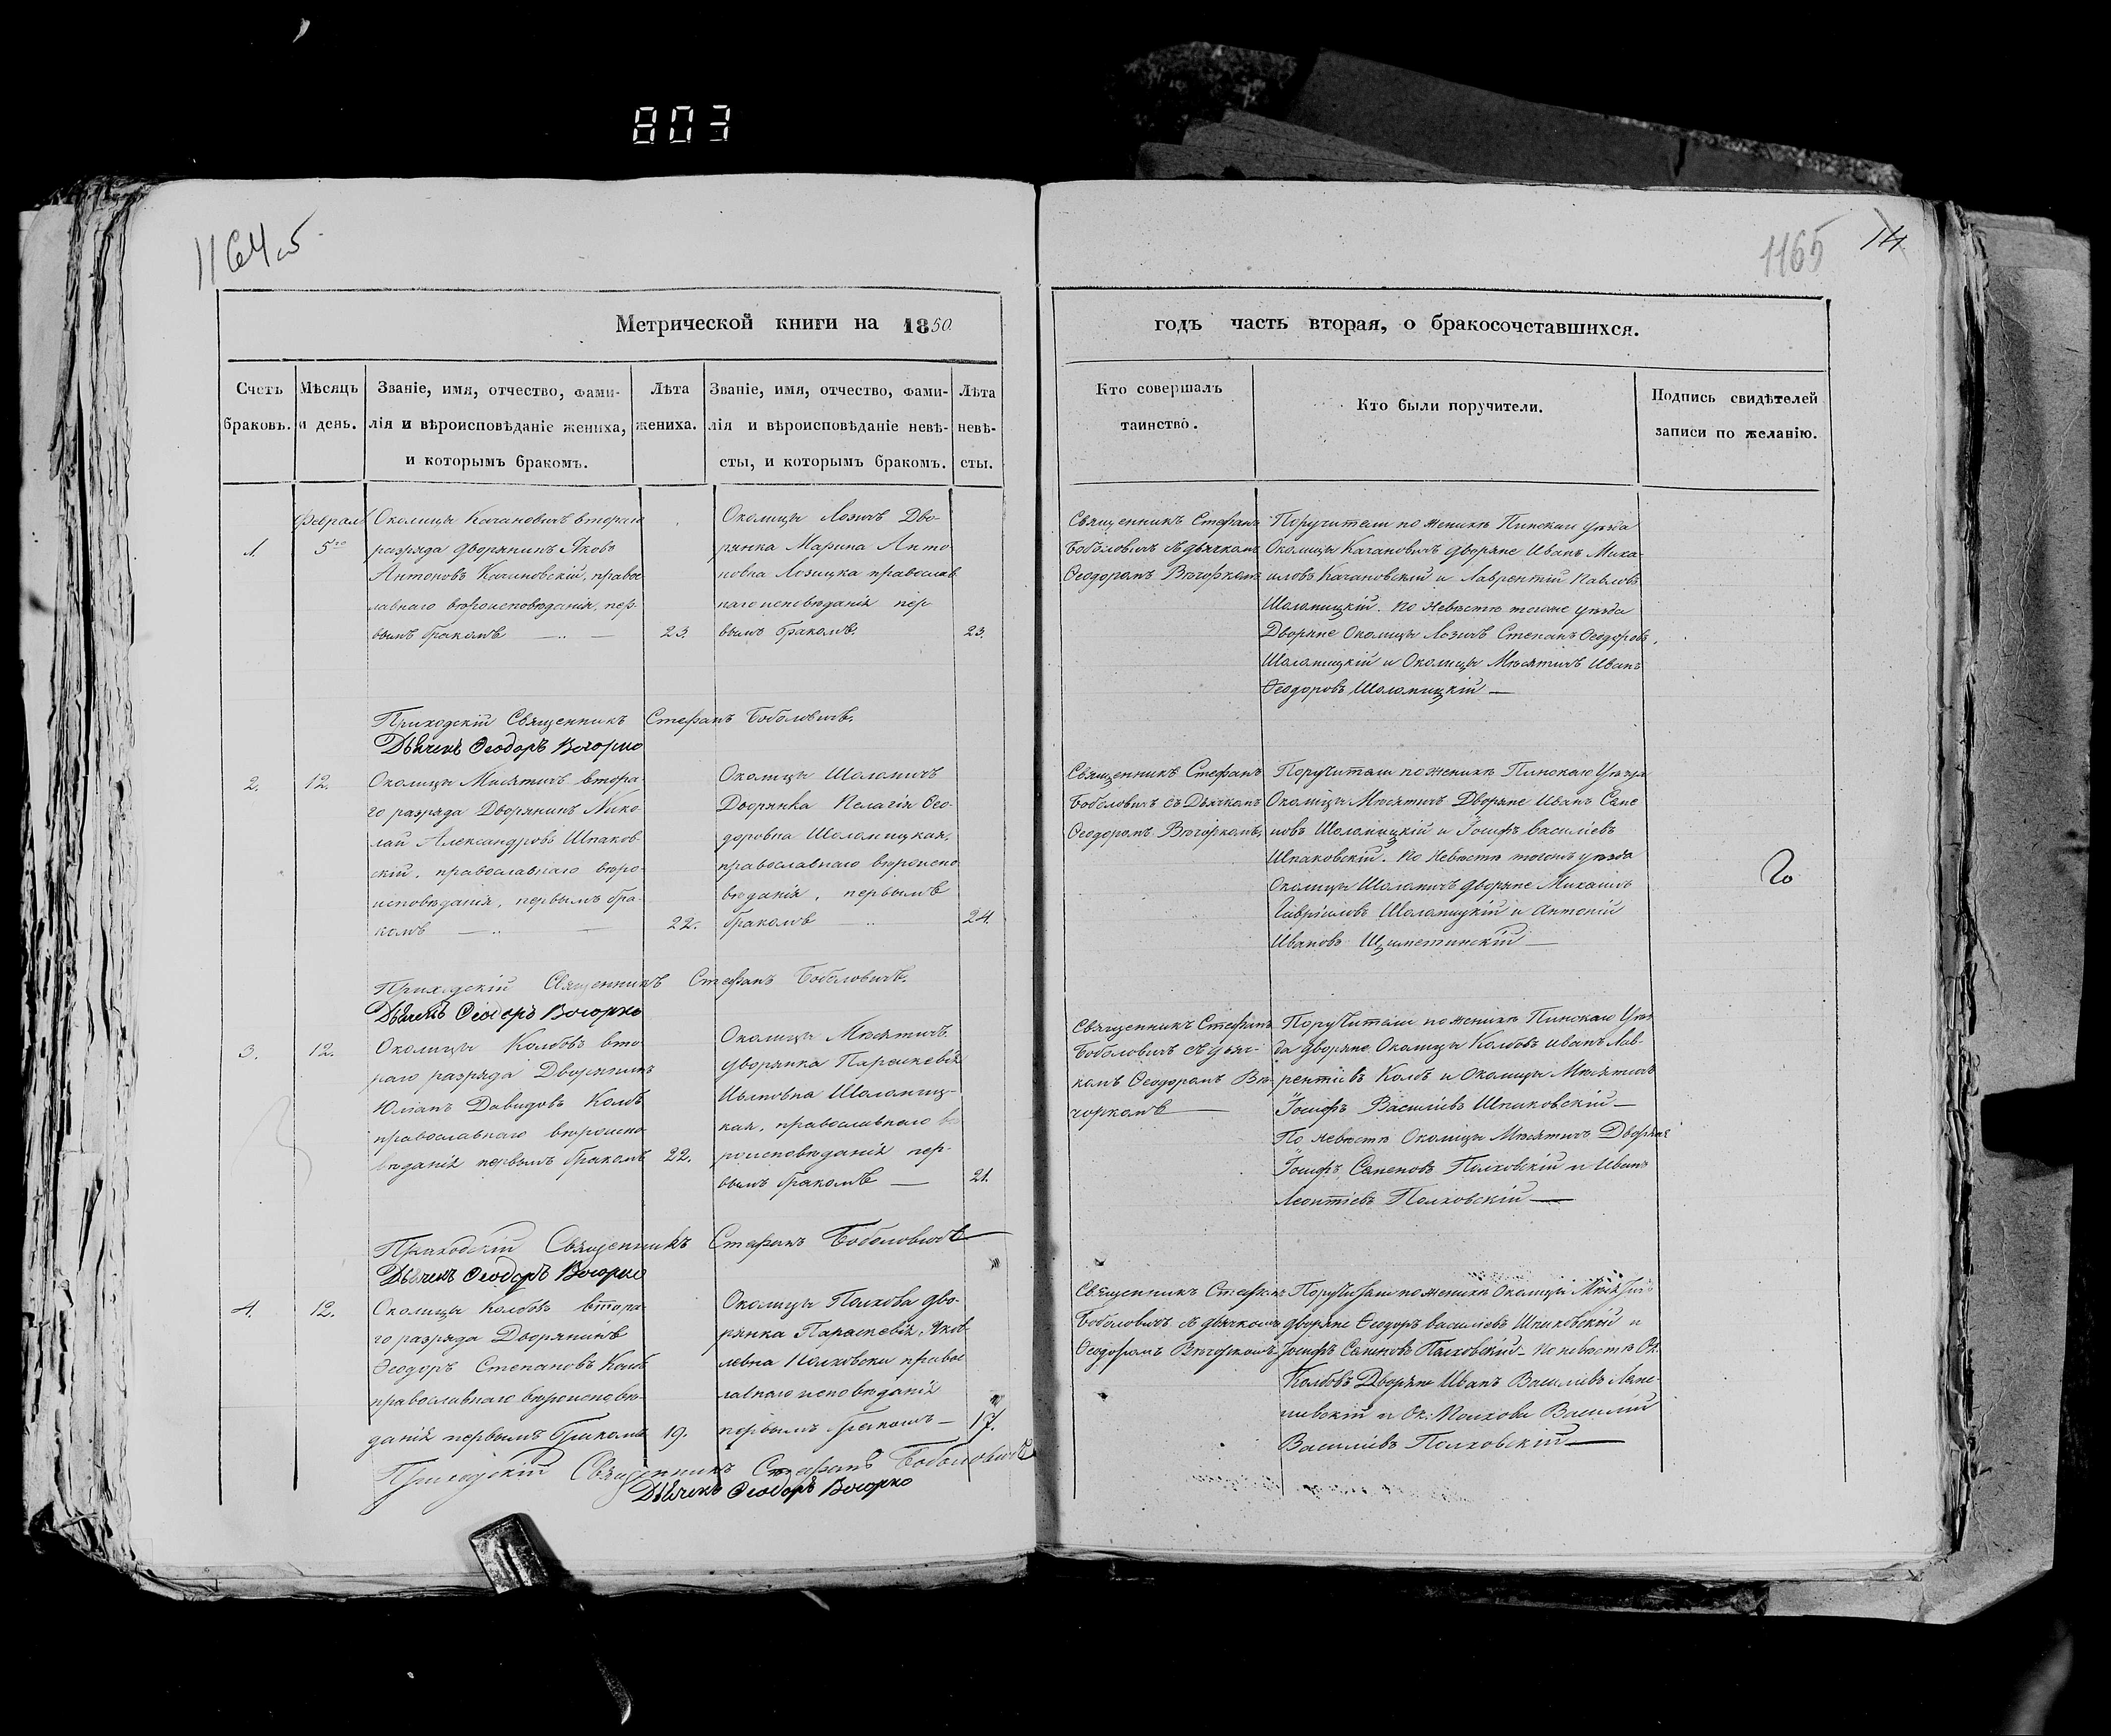 803
1164об
1165
14
Метрической книги на 1850
годъ часть вторая, о бракосочетавшихся.
Счетъ браковъ.
Мѣсяцъ и день.
Званіе, имя, отчество, фами-
лія и вѣроисповѣданіе жениха,
и которымъ бракомъ.
Лѣта
жениха.
Званіе, имя, отчество, фами-
лія и вѣроисповѣданіе невѣ-
сты, и которымъ бракомъ.
Лѣта
невѣ-
сты.
Кто совершалъ
таинство.
Кто были поручители.
Подпись свидѣтелей
записи по желанію.
1.
Феврал
5го
Околицы Качановичъ втораго
разряда дворянинъ Яковъ
Антоновъ Качановскій, правос
лавнаго вѣроисповѣданія, пер-
вымъ бракомъ
23.
Околицы Лозичъ Дво-
рянка Марина Анто
новна Лозицка православ
наго исповѣданія пер-
вымъ бракомъ.
23.
Священникъ Стефанъ
Боболовичъ съ дьячкомъ
Ѳеодоромъ Вѣчоркомъ
Поручители по женихѣ Пинскаго уѣзда
Околицы Качановичъ дворяне Иванъ Миха-
иловъ Качановскій и Лаврентій Павловъ
Шоломицкій. По невѣстѣ тогоже уѣзда
Дворяне Околицы Лозичъ Степанъ Ѳеодоровъ
Шоломицкій и Околицы Мѣсятичъ Иванъ
Ѳеодоровъ Шоломицкій —
Приходскій Священникъ Стефанъ Боболовичъ.
Дьячекъ Ѳеодоръ Вечорко
2.
12.
Околицы Мѣсятичъ втора-
го разряда Дворянинъ Нико-
лай Александровъ Шпаков-
скій, православнаго вѣро-
исповѣданія, первымъ бра-
комъ
22.
Околицы Шоломичъ
Дворянка Пелагія Ѳео-
доровна Шоломицкая,
православнаго вѣроиспо
вѣданія, первымъ
бракомъ
24.
Священникъ Стефанъ
Боболовичъ съ Дьячкомъ
Ѳеодоромъ Вѣчоркомъ,
Поручители по женихѣ Пинскаго Уѣзда
Околицы Мѣсятичъ Дворяне Иванъ Семе
новъ Шоломицкій и Іосифъ Василіевъ
Шпаковскій. По невѣстѣ тогожъ уѣзда
Околицы Шоломичъ дворяне Михаилъ
Гавріиловъ Шоломицкій и Антоній
Ивановъ
Приходскій Священникъ Стефанъ Боболовичъ.
Дьячекъ Ѳеодоръ Вечорко
3.
12.
Околицы Колбовъ вто-
раго разряда Дворянинъ
Юліанъ Давидовъ Колбъ
православнаго вѣроиспо-
вѣданія первымъ бракомъ
22.
Околицы Мѣсятичъ
дворянка Параскевія
Шоломиц-
кая, православнаго вѣ
роисповѣданія пер-
вымъ бракомъ —
21.
Священникъ Стефанъ
Боболовичъ съ дьяч-
комъ Ѳеодоромъ Вѣ-
чоркомъ —
Поручители по женихѣ Пинскаго Уѣз
да дворяне Околицы Колбовъ Иванъ Лав-
рентіевъ Колбъ и Околицы Мѣсятичъ
Іосифъ Василіевъ Шпаковскій —
По невѣстѣ Околицы Мѣсятичъ Дворяне
Іосифъ Семеновъ Полховскій и Иванъ
Леонтіевъ Полховскій —
Приходскій Священникъ Стефанъ Боболовичъ
Дьячекъ Ѳеодоръ Вечорко
4.
12.
Околицы Колбовъ втора-
го разряда Дворянинъ
Ѳеодоръ Степановъ Колбъ
православнаго вѣроисповѣ-
данія первымъ бракомъ
19.
Околицы Полхова дво-
рянка Параскевія Яков
левна Полховска правос
лавнаго исповѣданія
первымъ бракомъ —
17.
Священникъ Стефанъ
Боболовичъ съ дьячкомъ
Ѳеодоромъ Вѣчоркомъ
Поручители по женихѣ Околицы
дворяне Ѳеодоръ Василіевъ Шпаковскій и
Іосифъ Семеновъ Полховскій — По невѣстѣ Ок.
Колбовъ Дворяне Иванъ Василіевъ
и Ок: Полхова Василій
Василіевъ Полховскій —
Приходскій Священникъ Стефанъ Боболовичъ
Дьячекъ Ѳеодоръ Вечорко